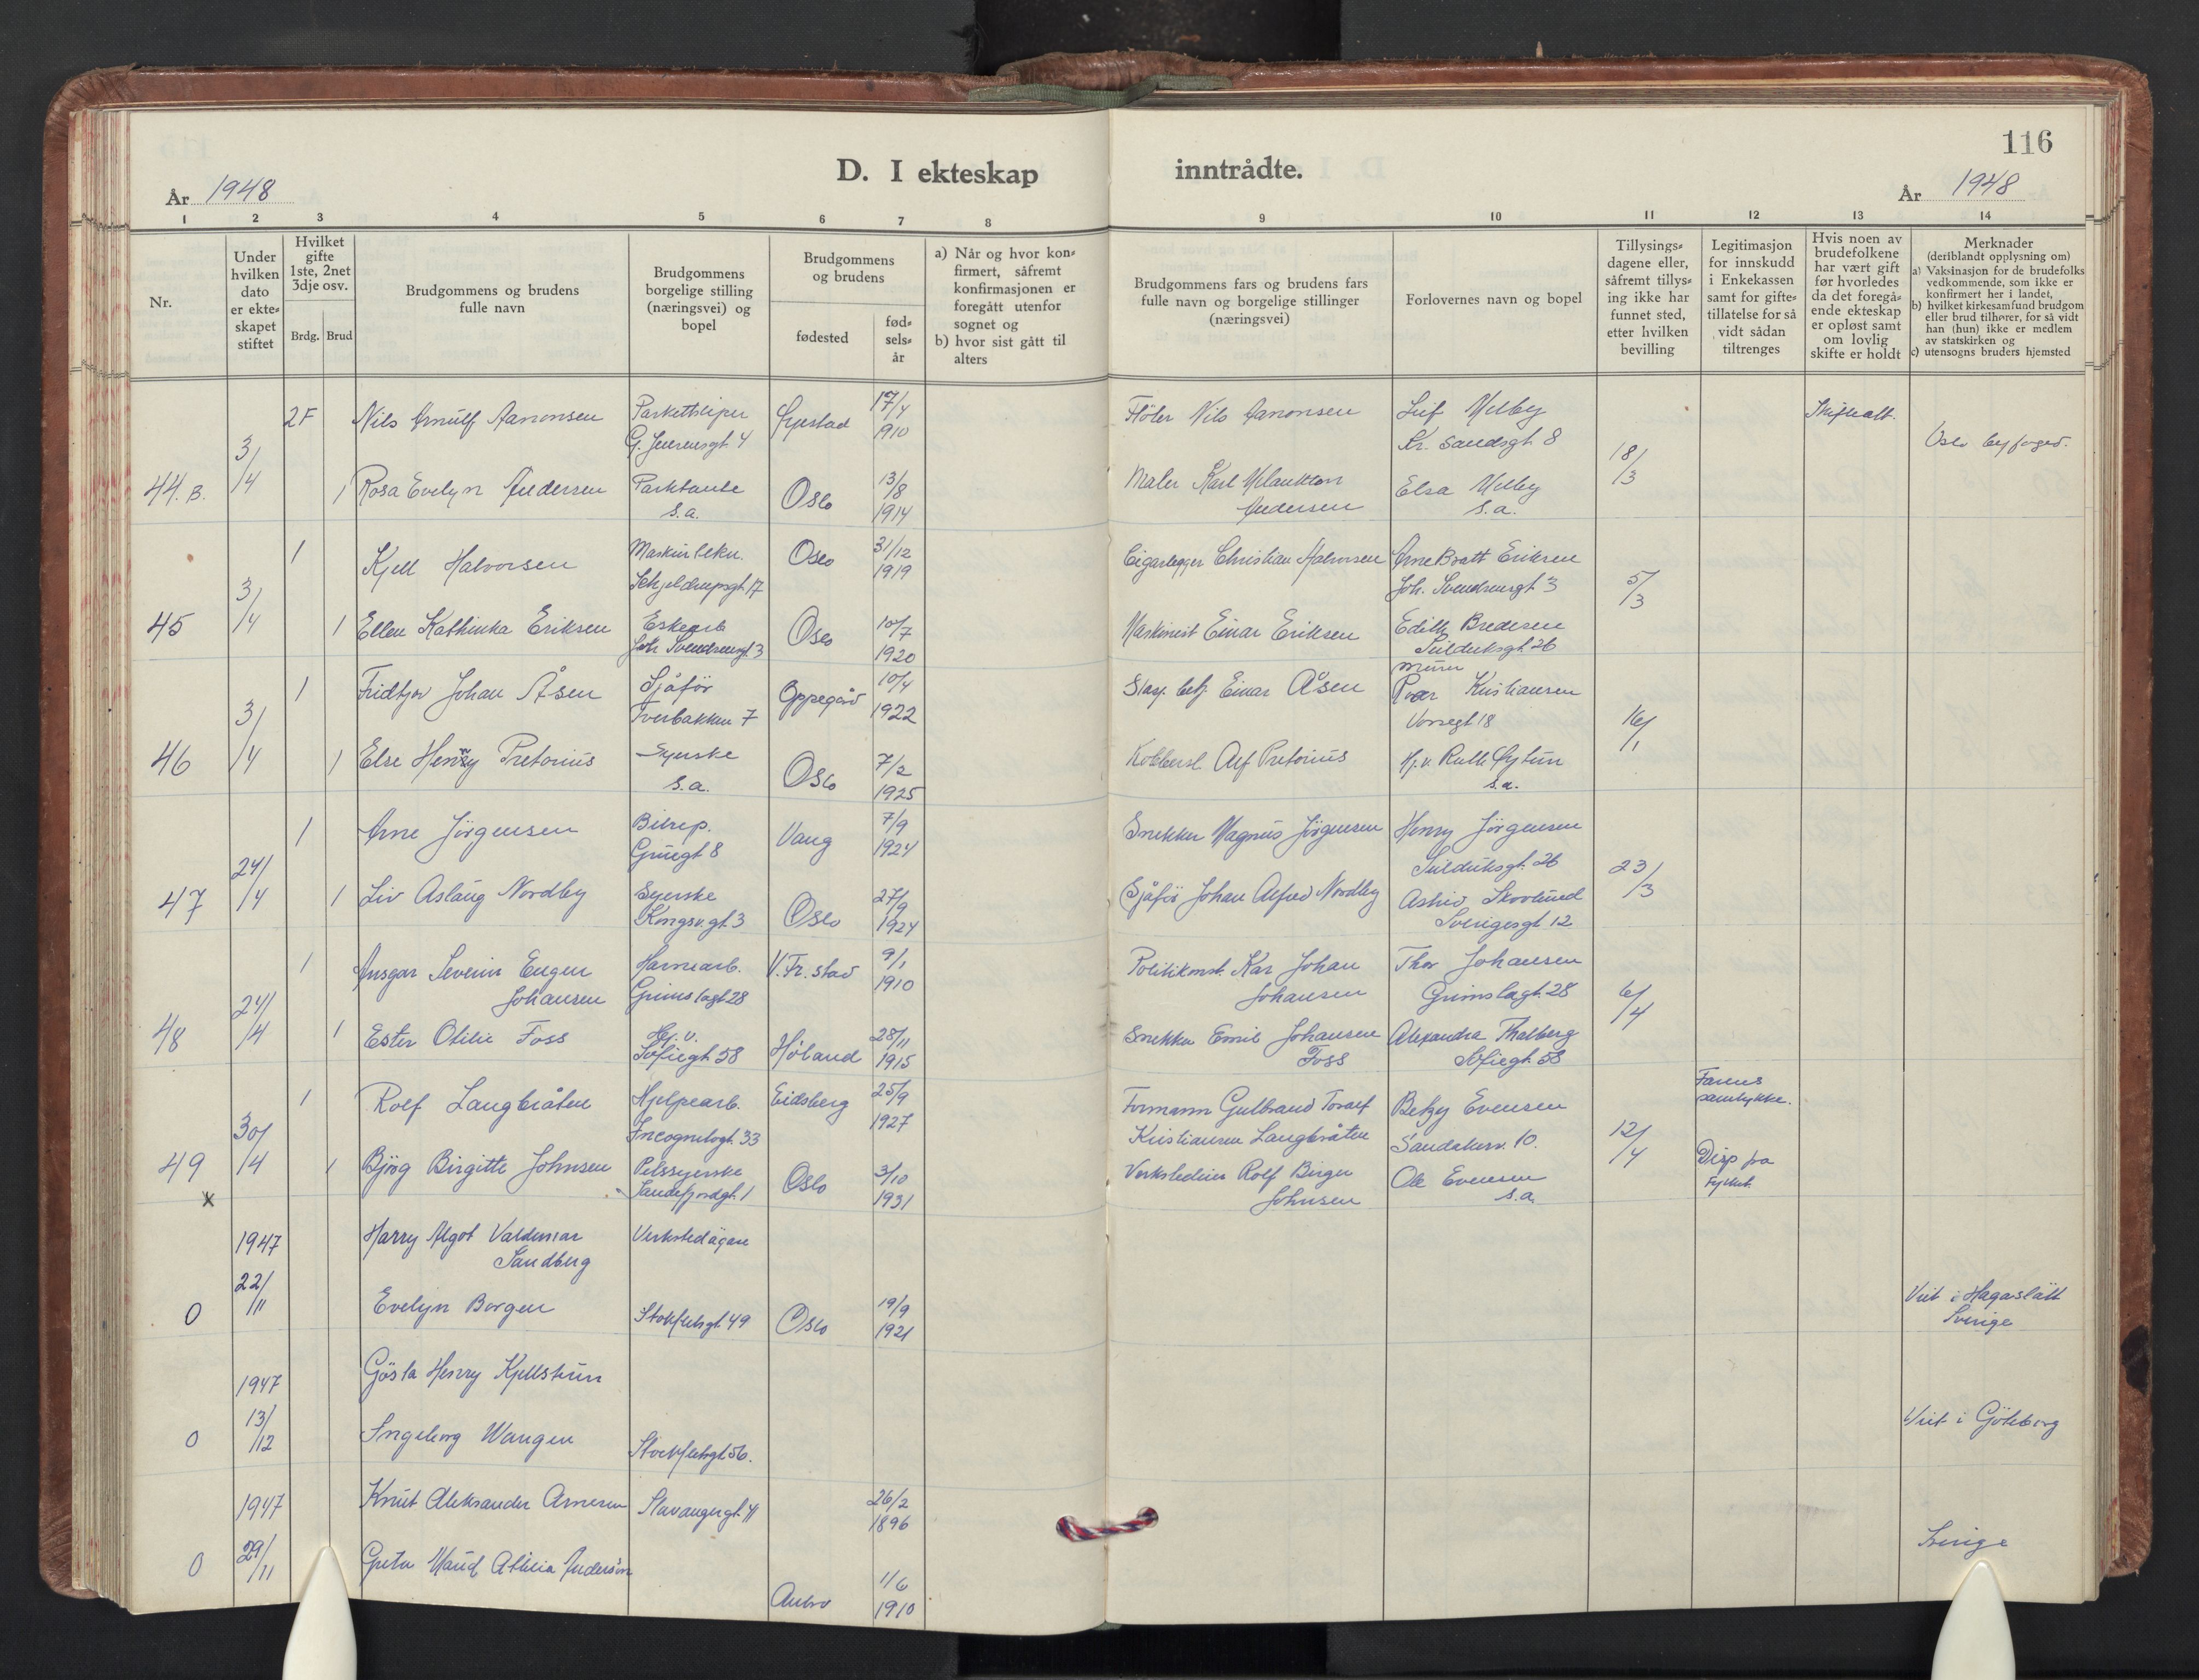 116
D. I ekteskap inntrådte.
År 1948
År 1948
1 2 3 4 5 6 7 8 9 10 11 12 13 14
Nr.
Under hvilken dato er ekte= skapet stiftet
Hvilket gifte 1ste, 2net 3dje osv.
Brdg. Brud
Brudgommens og brudens fulle navn
Brudgommens borgelige stilling (næringsvei) og bopel
Brudgommens og brudens
fødested
fød= sels= år
a) Når og hvor kon= firmert, såfremt konfirmasjonen er foregått utenfor sognet og
b) hvor sist gått til alters
Brudgommens fars og brudens fars fulle navn og borgelige stillinger (næringsvei)
Forlovernes navn og bopel
Tillysings= dagene eller, såfremt tillys= ing ikke har funnet sted, etter hvilken bevilling
Legitimasjon for innskudd i Enkekassen samt for gifte= tillatelse for så vidt sådan tiltrenges
Hvis noen av brudefolkene har vært gift før hvorledes da det foregå= ende ekteskap er opløst samt om lovlig skifte er holdt
Merknader (deriblandt opplysning om)
a) Vaksinasjon for de brudefolks vedkommende, som ikke er konfirmert her i landet,
b) hvilket kirkesamfund brudgom eller brud tilhører, for så vidt han (hun) ikke er medlem av statskirken og
c) utensogns bruders hjemsted
2F Nils Arnulf Aanonsen 17/4 1910 Nils Aanonsen Leif Melby
G. Jensensgt 4 Kr. Sandsgt 8 Oslo byfoged.
44.B. 3/4 1 Rosa Evelyn Andersen s.a. Oslo 13/8 1914 Maler Karl Andersen Elsa Melby s.a. 18/3
1 Kjell Halvorsen Schjeldrupsgt 17 Oslo 31/12 1919 Christian Halvorsen Arne Bratt Eriksen
Joh. Svendsensgt 3
45 3/4 1 Ellen Kathinka Eriksen Eskearb. Joh. Svendsensgt 3 Oslo 10/7 1920 Maskinist Einar Eriksen Edith Bredesen 5/3
1 Fridtjov Johan Åsen Sjåför Tverbakken 7 Oppegård 10/4 1922 Einar Åsen Murer Kristiansen
Vossegt 18
46 3/4 1 Else Henny Pretorius Syerske s.a. Oslo 7/2 1925 Alf Pretorius Hj.v. Ruth s.a. 16/1
1 Arne Jörgensen Bilrep. Grüegt 8 Vang 7/9 1924 Snekker Magnus Jörgensen Henry Jörgensen
47 24/4 1 Liv Aslaug Nordby Syerske Kongsv.gt. 3 Oslo 27/9 1924 Sjåför Johan Alfred Nordby Astrid Skovlund Sverigesgt 12 23/3
1 Ansgar Severin Eugen Johansen Grimstagt 28 V. Fr. stad 9/1 1910 Politikonst. Kar Johan Johansen Thor Johansen Grimstagt. 28
48 24/4 1 Ester Otilie Foss Hj.v. Sofiegt 58 Höland 28/11 1915 Snekker Emil Johansen Foss Alexandra Thalberg Sofiegt. 58 6/4
1 Rolf Langbråten Hjelpearb. Incognitogt. 33 Eidsberg 25/9 1927 Formann Gulbrand Toralf Kristiansen Langbråten Betzy Evensen Sandakerv. 10. Farens samtykke.
49 x 30/4 1 Bjørg Birgitte Johnsen Pelssyerske Sandefjordgt. 1 Oslo 3/10 1931 Rolf Birger Johnsen Ole Evensen s.a. 12/4 Disp fra Fylket.
1947 Harry Algot Valdemar Sandberg Verkstedägare
0 22/11 Evelyn Borgen Stokfletsgt. 49 Oslo 19/9 1921 Viet i Hagaslätt Sverige
1947 Gösta Henry Kjellström
0 13/12 Ingeborg Wangen Stockfletsgt 56. Viet i Göteborg
1947 Knut Aleksander Arnesen Stavangergt. 41 26/2 1896
0 29/11 Greta Maud Andersson 1/6 1910 Sverige